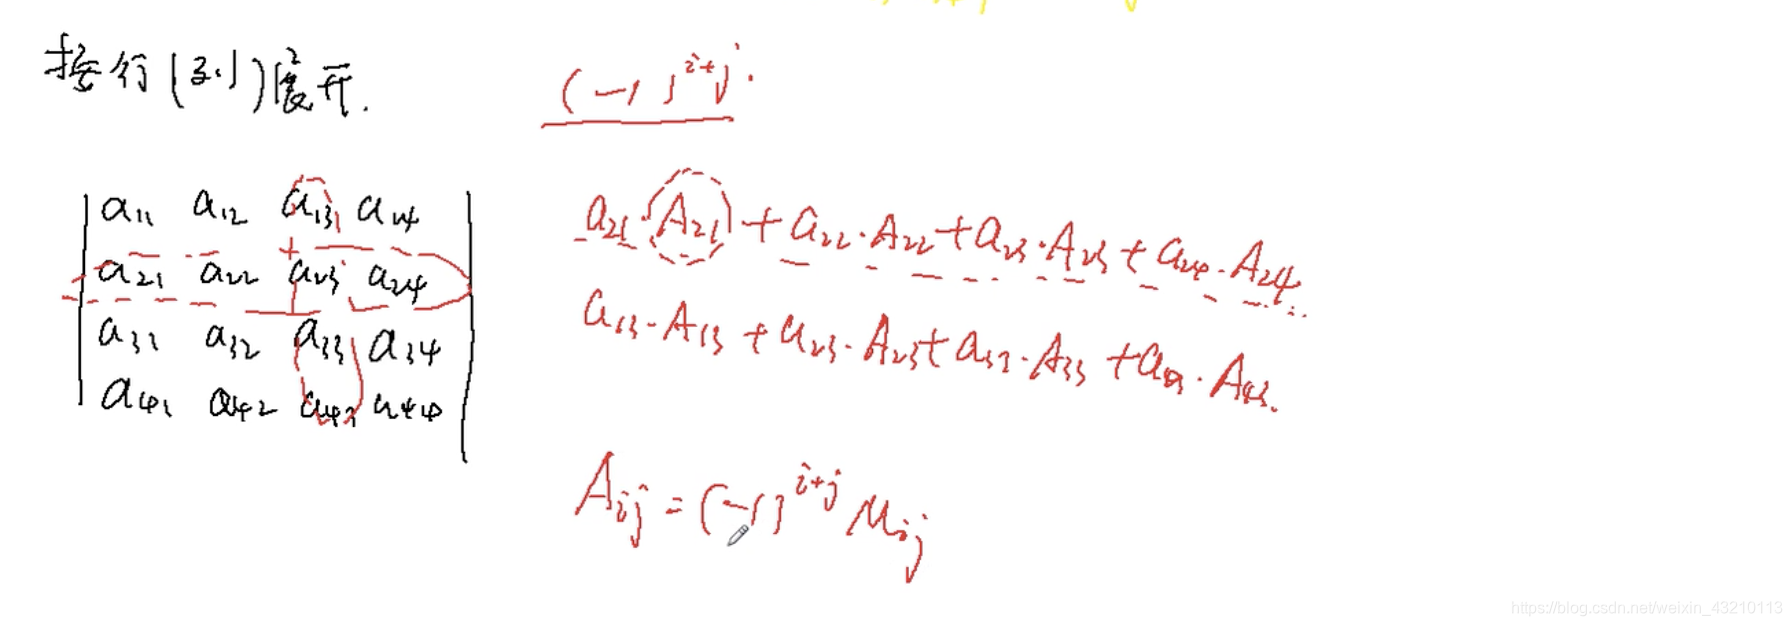 按行(列)展开.
(-1)^{i+j}.
a₁₁ a₁₂ a₁₃ a₁₄
a₂₁ a₂₂ a₂₃ a₂₄
a₃₁ a₃₂ a₃₃ a₃₄
a₄₁ a₄₂ a₄₃ a₄₄
a₂₁·A₂₁+a₂₂·A₂₂+a₂₃·A₂₃+a₂₄·A₂₄
a₁₃·A₁₃+a₂₃·A₂₃+a₃₃·A₃₃+a₄₃·A₄₃.
A_{ij}=(-1)^{i+j}M_{ij}
https://blog.csdn.net/weixin_43210113